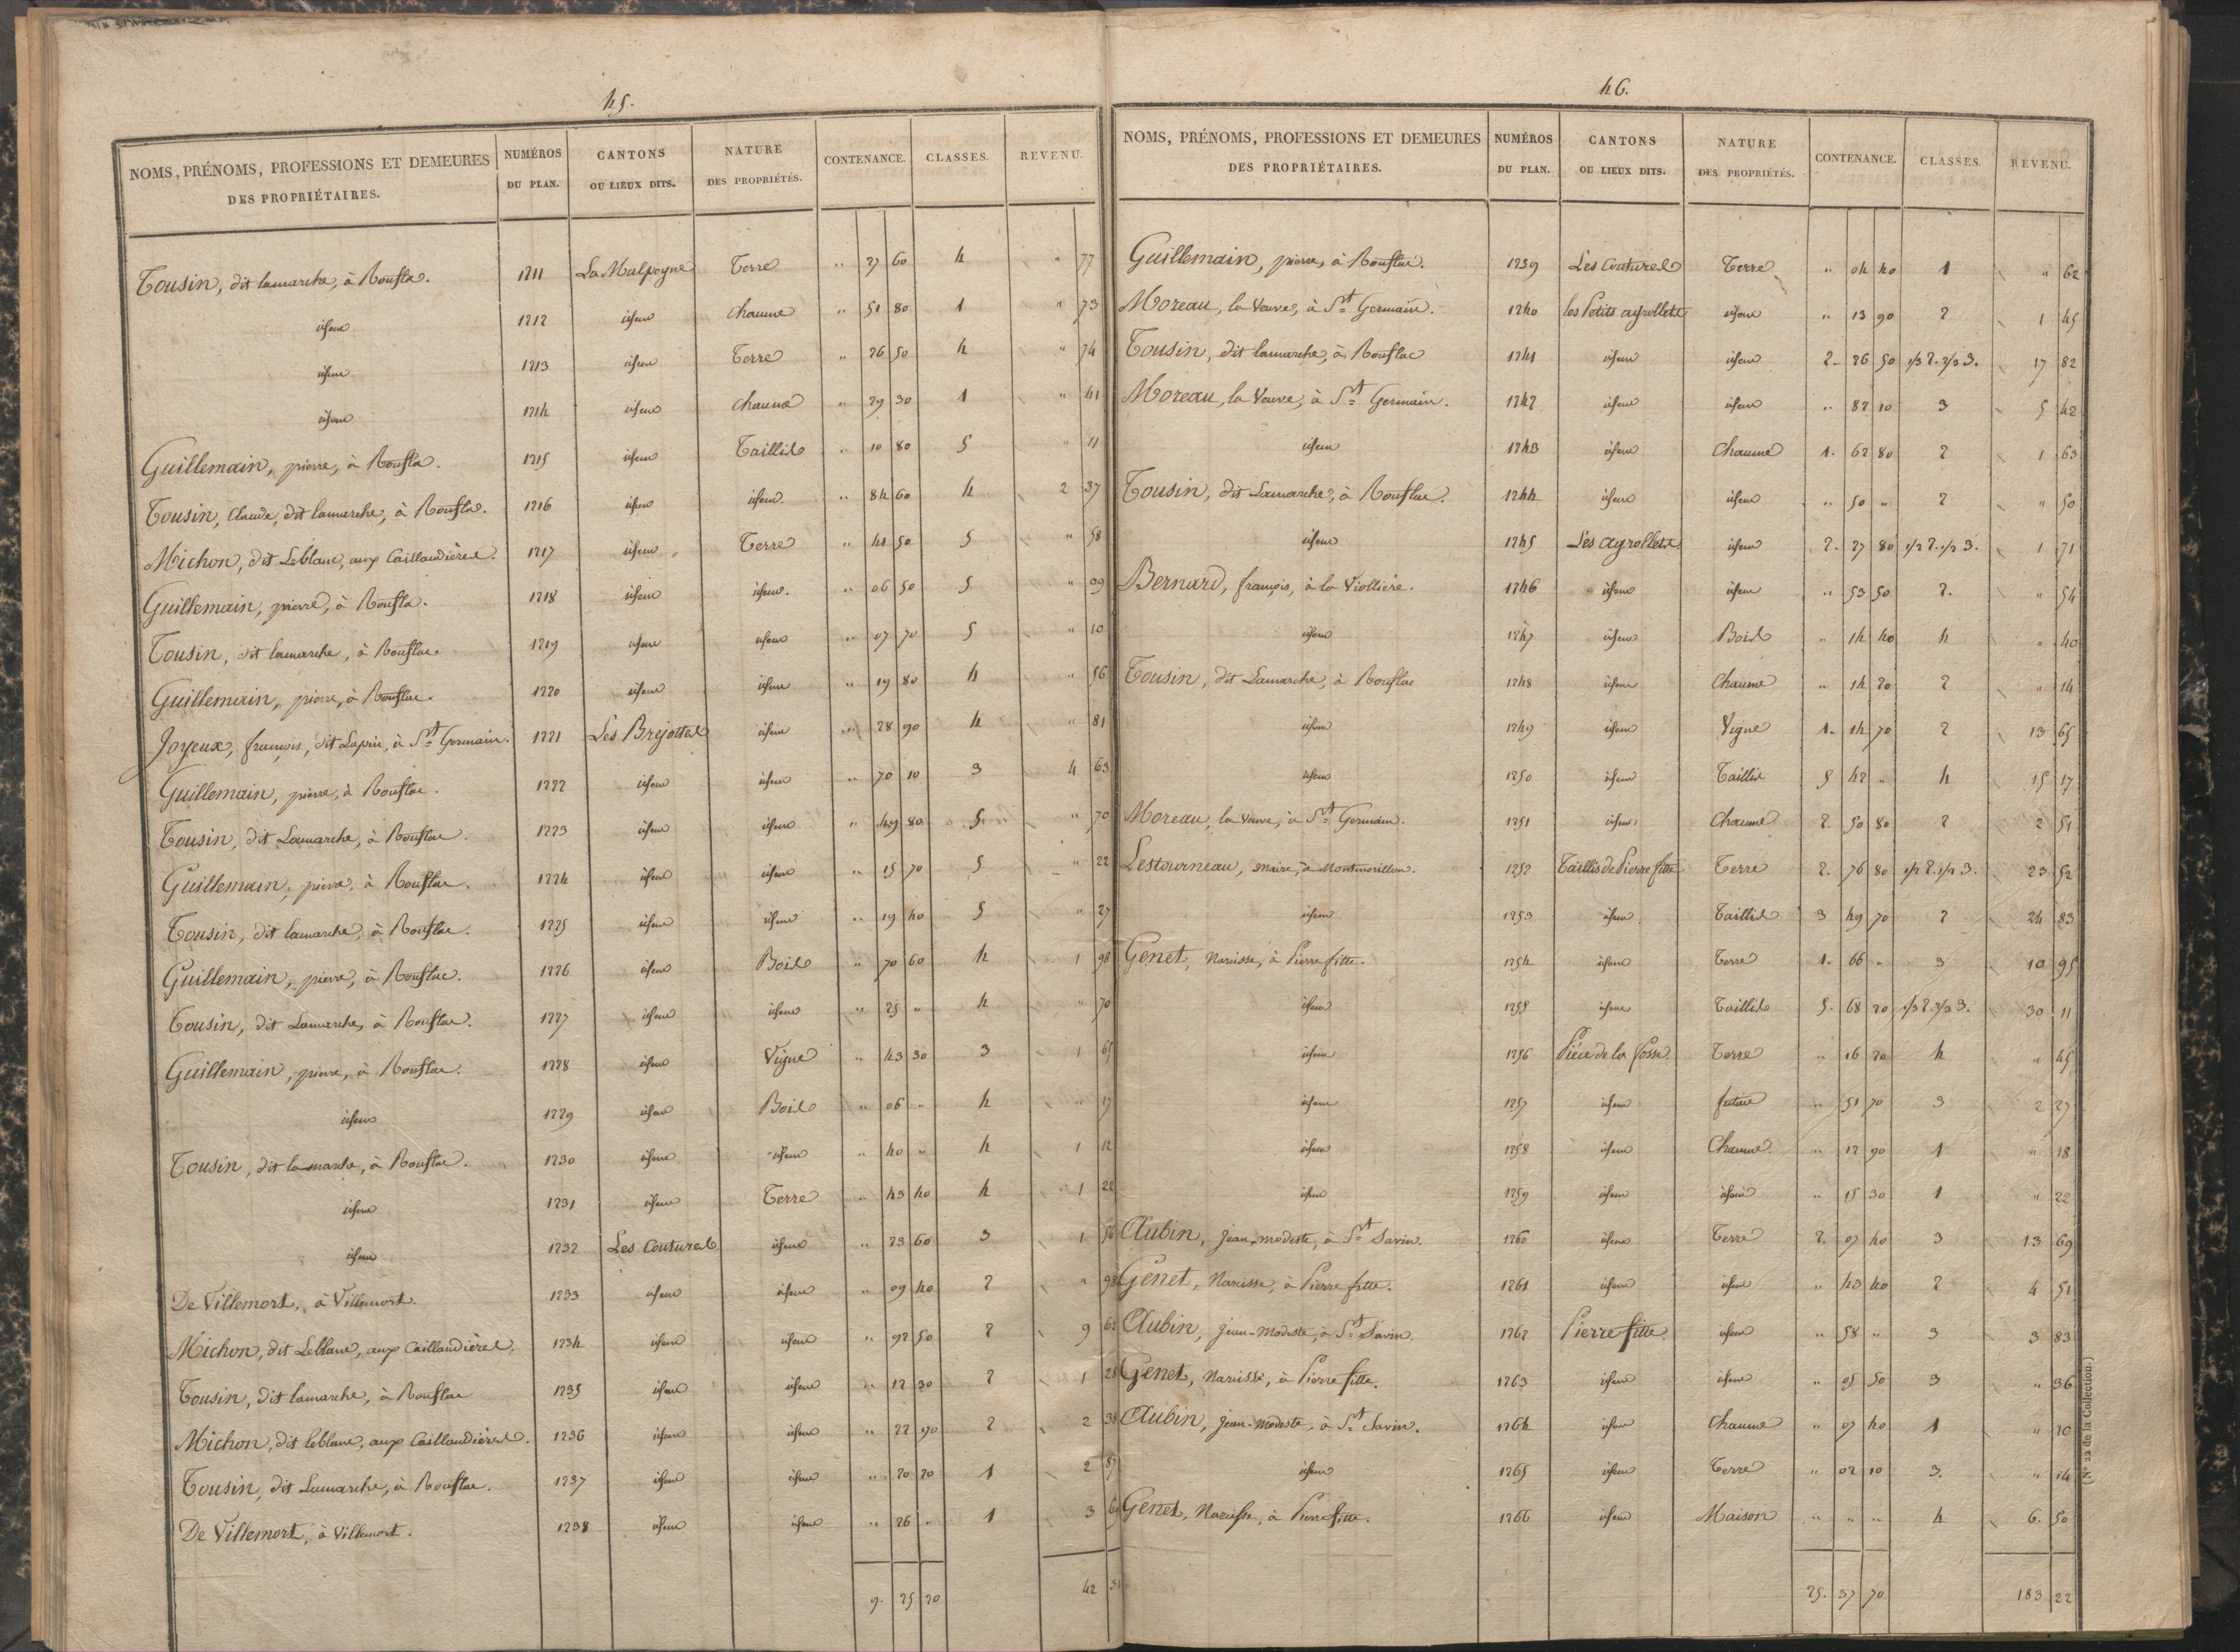 45.
NOMS, PRÉNOMS, PROFESSIONS ET DEMEURES DES PROPRIÉTAIRES. NUMÉROS DU PLAN. CANTONS OU LIEUX DITS. NATURE DES PROPRIÉTÉS. CONTENANCE. CLASSES. REVENU.
Tousin, dit lamarche, à Roufla. 1211 La Malpogne Terre " 27 60 4 " 77
idem 1212 idem chaume " 51 80 1 " 73
idem 1213 idem Terre " 26 50 4 " 74
idem 1214 idem chaume " 29 30 1 " 41
Guillemain, pierre, à Roufla. 1215 idem Taillis " 10 80 5 " 11
Tousin, Claude, dit lamarche, à Roufla. 1216 idem idem " 84 60 4 2 37
Michon, dit Leblanc, aux Caillaudières. 1217 idem Terre " 41 50 5 " 58
Guillemain, pierre, à Roufla. 1218 idem idem " 06 50 5 " 09
Tousin, dit lamarche, à Rouflac. 1219 idem idem " 07 70 5 " 10
Guillemain, pierre, à Rouflac. 1220 idem idem " 19 80 4 " 56
Joyeux, françois, dit Lapin, à St Germain. 1221 Les Brejottes idem " 28 90 4 " 81
Guillemain, pierre, à Rouflac. 1222 idem idem " 70 10 3 4 63
Tousin, dit Lamarche, à Rouflac. 1223 idem idem " 49 80 5 " 70
Guillemain, pierre, à Rouflac. 1224 idem idem " 15 70 5 " 22
Tousin, dit lamarche, à Rouflac. 1225 idem idem " 19 40 5 " 27
Guillemain, pierre, à Rouflac. 1226 idem Bois " 70 60 4 1 98
Tousin, dit Lamarche, à Rouflac. 1227 idem idem " 25 " 4 " 70
Guillemain, pierre, à Rouflac. 1228 idem Vigne " 43 30 3 1 65
idem 1229 idem Bois " 06 " 4 " 17
Tousin, dit lamarche, à Rouflac. 1230 idem idem " 40 " 4 1 12
idem 1231 idem Terre " 43 40 4 1 22
idem 1232 Les Coutures idem " 23 60 3 1 56
De Villemort, à Villemort. 1233 idem idem " 09 40 2 " 98
Michon, dit Leblanc, aux Caillaudières. 1234 idem idem " 92 50 2 9 62
Tousin, dit lamarche, à Rouflac 1235 idem idem " 12 30 2 1 28
Michon, dit leblanc, aux Caillaudières. 1236 idem idem " 22 90 2 2 38
Tousin, dit Lamarche, à Rouflac. 1237 idem idem " 20 20 1 2 87
De Villemort, à Villemort. 1238 idem idem " 26 " 1 3 69
9. 25 20 42
46.
NOMS, PRÉNOMS, PROFESSIONS ET DEMEURES DES PROPRIÉTAIRES. NUMÉROS DU PLAN. CANTONS OU LIEUX DITS. NATURE DES PROPRIÉTÉS. CONTENANCE. CLASSES. REVENU.
Guillemain, pierre, à Rouflac. 1239 Les Coutures Terre " 04 40 1 " 62
Moreau, la Veuve, à St Germain. 1240 les Petits ayrollets idem " 13 90 2 1 45
Tousin, dit lamarche, à Rouflac 1241 idem idem 2. 26 50 1/3 2. 2/3 3. 17 82
Moreau, la Veuve, à St Germain. 1242 idem idem " 82 10 3 5 42
idem 1243 idem Chaume 1. 62 80 2 1 63
Tousin, dit Lamarche, à Rouflac. 1244 idem idem " 50 " 2 " 50
idem 1245 Les ayrollets idem 2. 27 80 1/2 2. 1/2 3. 1 71
Bernard, françois, à la Viollière. 1246 idem idem " 53 50 2. " 54
idem 1247 idem Bois " 14 40 4 " 40
Tousin, dit Lamarche, à Rouflac 1248 idem Chaume " 14 20 2 " 14
idem 1249 idem Vigne 1. 14 70 2 13 65
idem 1250 idem Taillis 5 42 " 4 15 17
Moreau, la Veuve, à St Germain. 1251 idem Chaume 2. 50 80 2 2 51
Lestourneau, Maire, à Montmorillon. 1252 Taillis de Pierre fitte Terre 2. 76 80 1/2 2. 1/2 3. 23 52
idem 1253 idem Taillis 3 49 70 2 24 83
Genet, Narcisse, à Pierre fitte. 1254 idem Terre 1. 66 " 3 10 95
idem 1255 idem Taillis 5. 68 20 1/3 2. 2/3 3. 30 11
idem 1256 Pièce de la fosse Terre " 16 20 4 " 45
idem 1257 idem futaie " 51 70 3 2 27
idem 1258 idem Chaume " 12 90 1 " 18
idem 1259 idem idem " 15 30 1 " 22
Aubin, Jean-modeste, à St Savin. 1260 idem Terre 2. 07 40 3 13 69
Genet, Narcisse, à Pierre fitte. 1261 idem idem " 43 40 2 4 51
Aubin, Jean-Modeste, à St Savin. 1262 Pierre fitte idem " 58 " 3 3 83
Genet, Narcisse, à Pierre fitte. 1263 idem idem " 05 50 3 " 36
Aubin, Jean-Modeste, à St Savin. 1264 idem Chaume " 07 40 1 " 10
idem 1265 idem Terre " 02 10 3. " 14
Genet, Narcisse, à Pierre fitte. 1266 idem Maison " " " 4 6. 50
25. 37 70 183 22
(N° 22 de la Collection.)